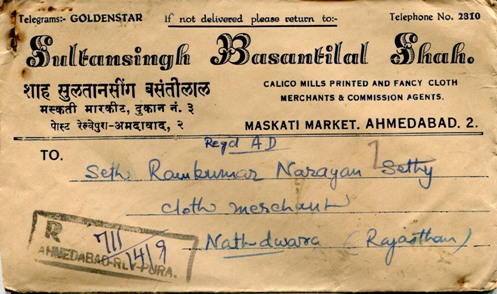 Telegrams:- GOLDENSTAR If not delivered please return to:- Telephone No. 2310
Sultansingh Basantilal Shah.
शाह सुलतानसींग बसंतीलाल
मस्कती मारकीट, दुकान नं. ३
पोस्ट रेल्वेपुरा-अमदावाद, २
CALICO MILLS PRINTED AND FANCY CLOTH
MERCHANTS & COMMISSION AGENTS.
MASKATI MARKET. AHMEDABAD. 2.
Regd A D
TO.
Seth Ramkumar Narayan Sethy
cloth merchant
Nathdwara (Rajasthan)
R
711
14/9
AHMEDABAD-RLY-PURA.